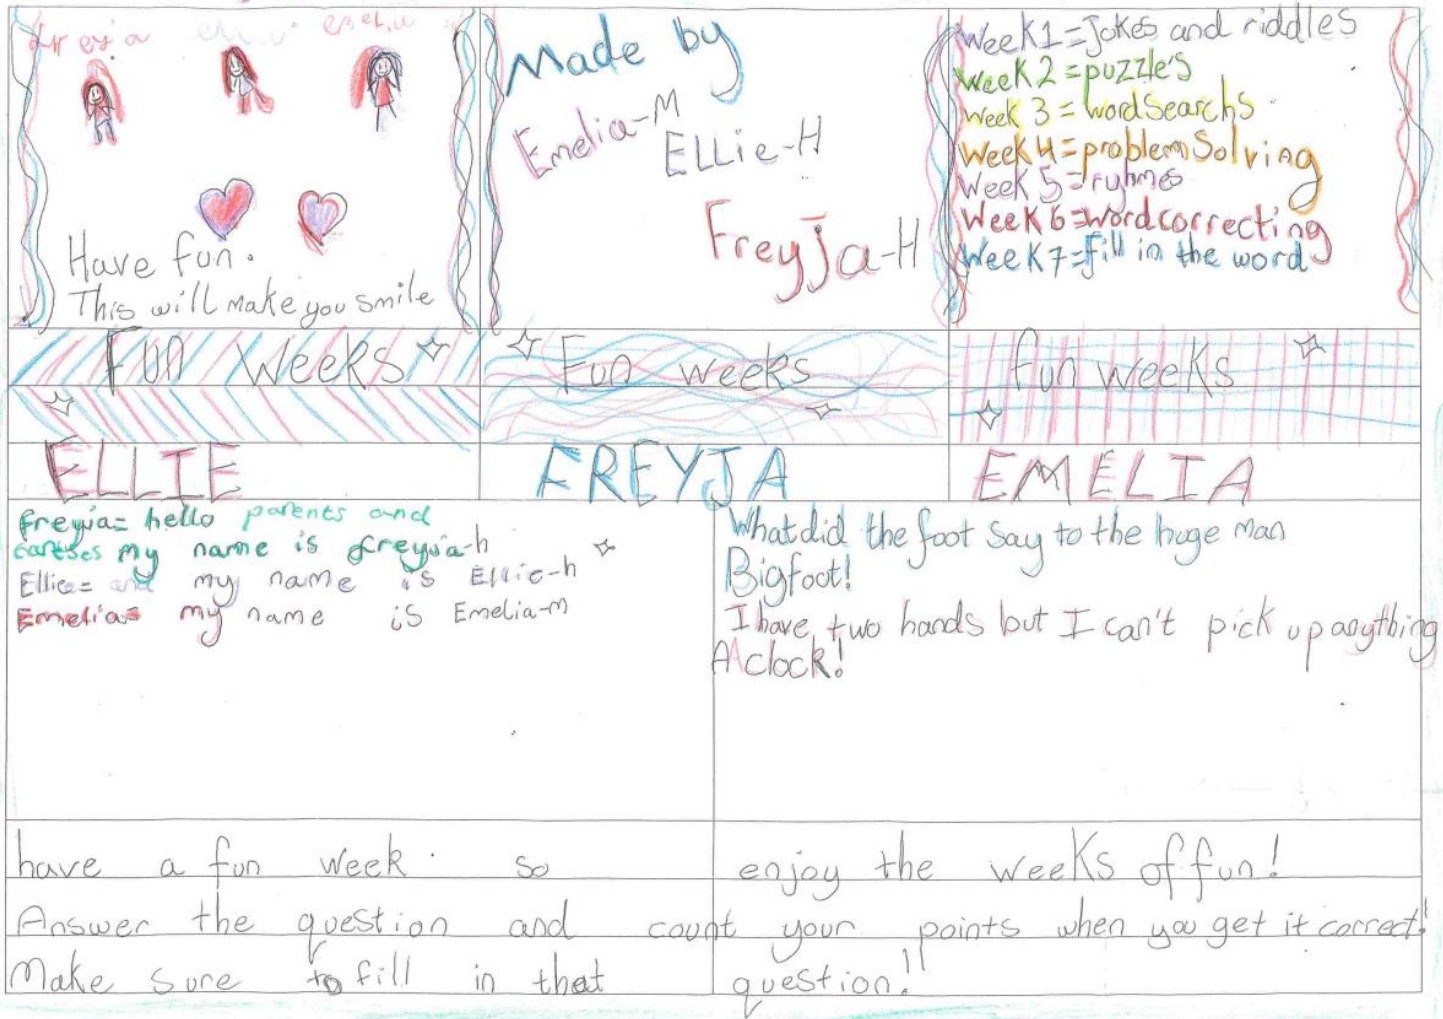 Freyja
EMELIA
Have fun.
This will make you smile
Made by
Emelia-M
ELLie-H
Freyja-H
Week1=Jokes and riddles
Week2=puzzle's
Week 3=wordsearchs
Week4=problemSolving
Week 5=ryhmes
Week6=wordcorrecting
Week7=fill in the word
Fun Weeks
Fun weeks
fun weeks
ELLIE
FREYJA
EMELIA
freyja= hello parents and
my name is freyja-h
Ellie= and my name is Ellie-h
Emelia= my name is Emelia-m
What did the foot Say to the huge man
Bigfoot!
I have two hands but I can't pick up anything
A clock!
have a fun week. so enjoy the weeks of fun!
Answer the question and count your points when you get it correct!
Make sure to fill in that question!